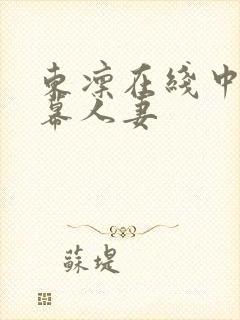 东凛在线中
幕人妻
蘇堤